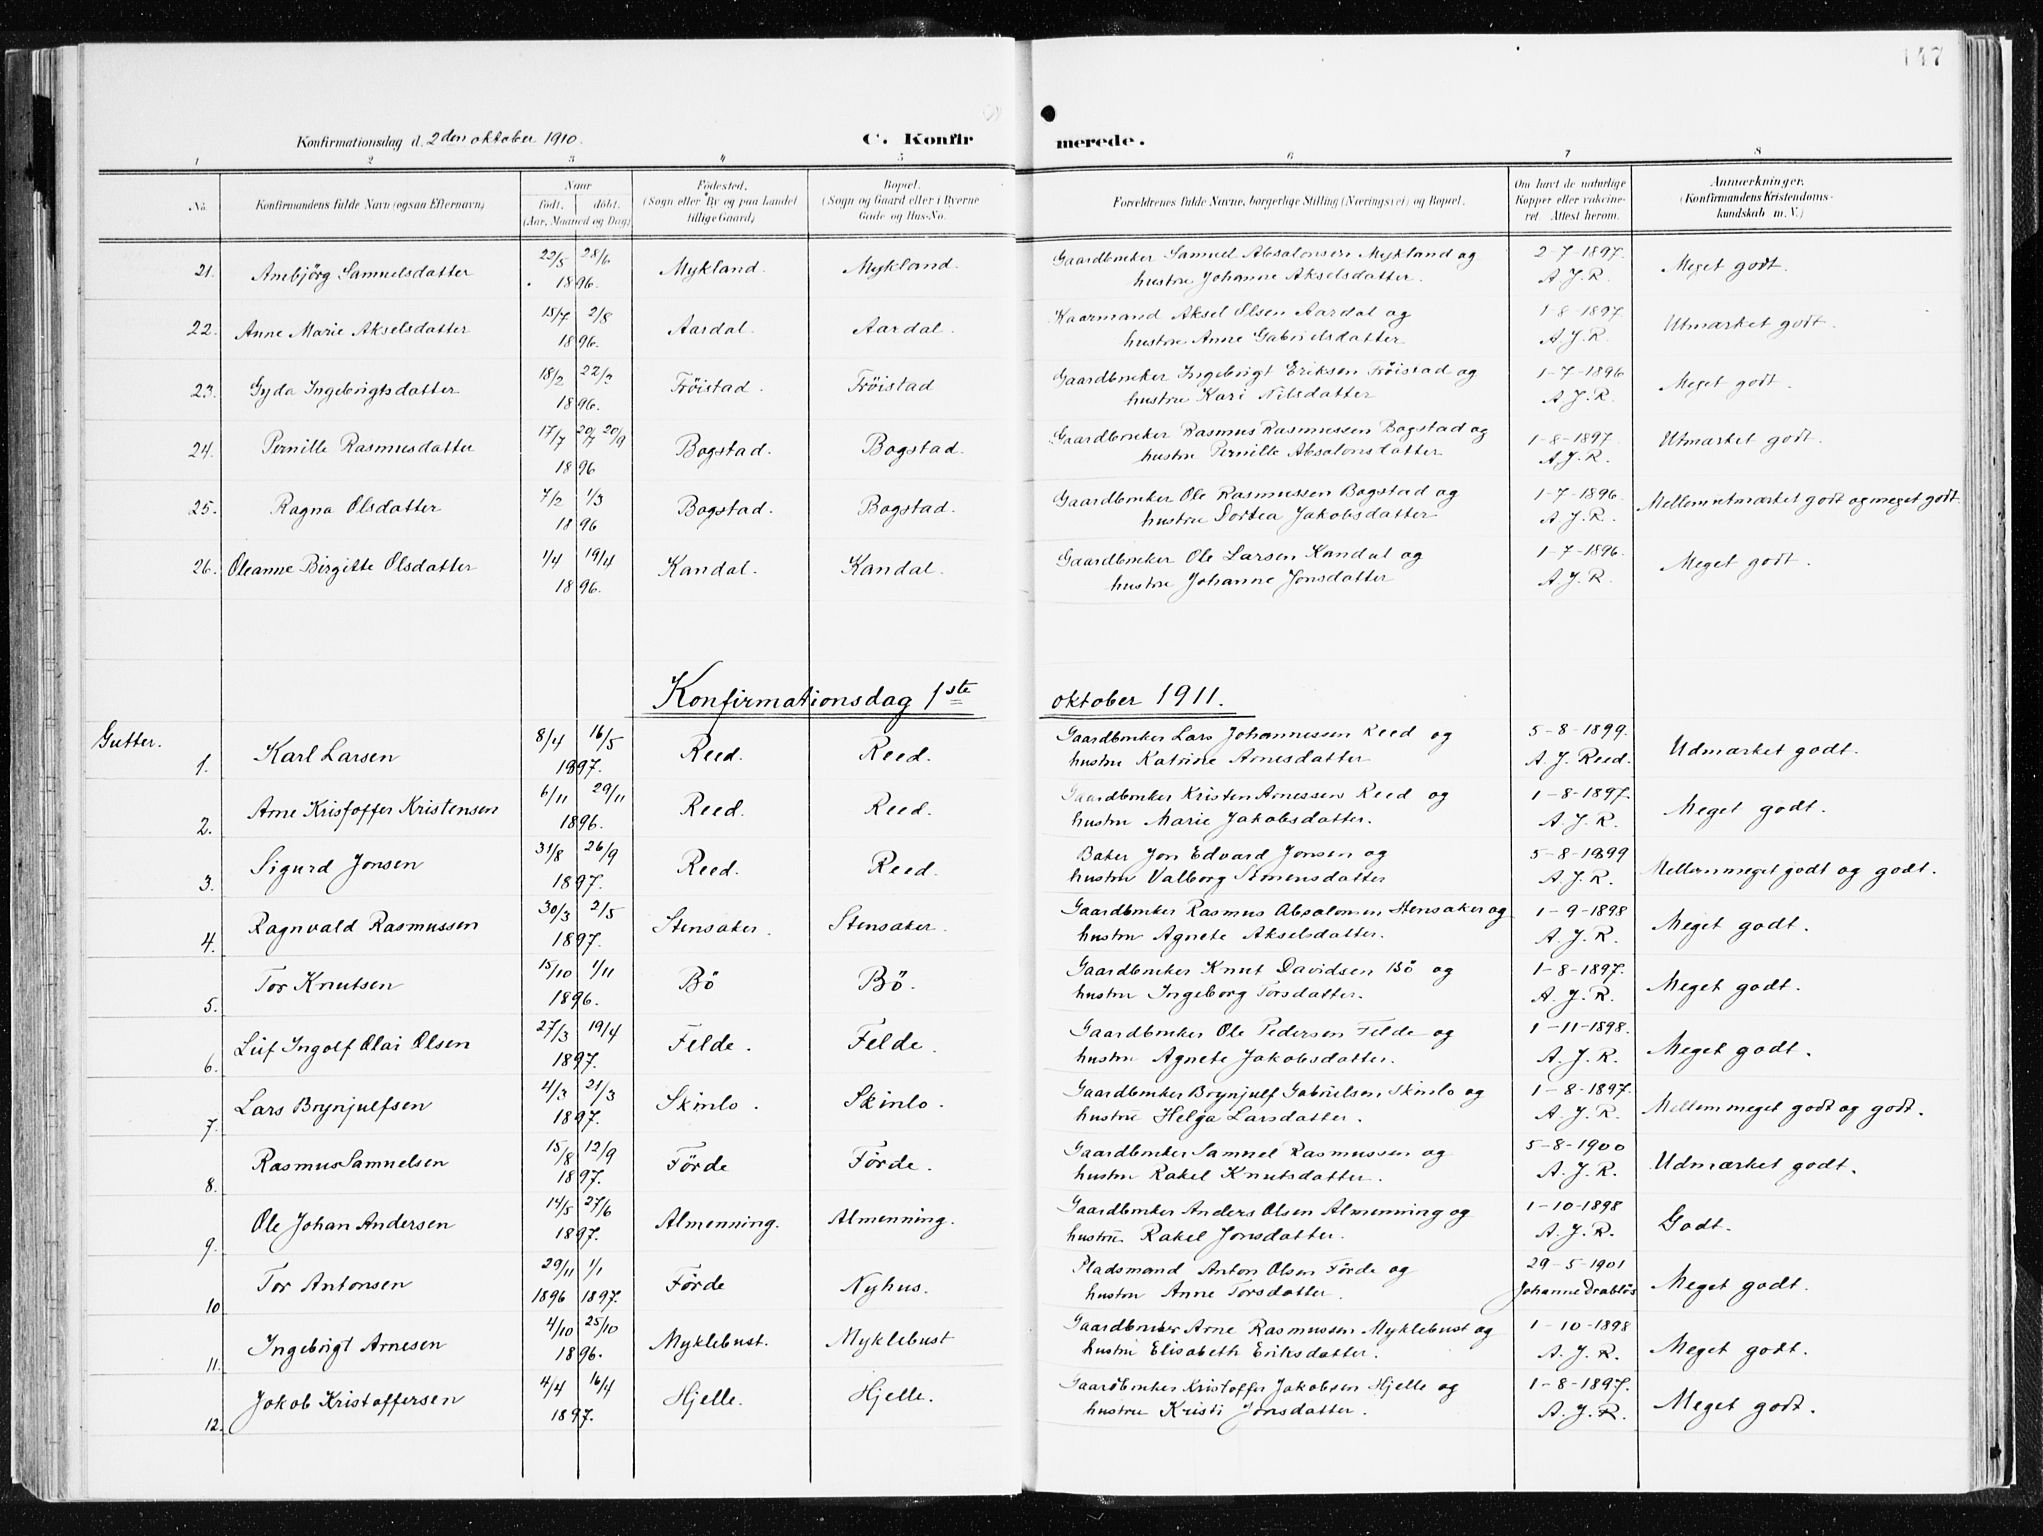 147
Konfirmationsdag d. 2den oktober 1910. C. Konfirmerede.
1 2 3 4 5 6 7 8
No. Konfirmandens fulde Navn (ogsaa Efternavn) Naar født. døbt. (Aar, Maaned og Dag) Fødested. (Sogn eller By og paa Landet tillige Gaard) Bopæl. (Sogn og Gaard eller i Byerne Gade og Hus-No. Forældrenes fulde Navne, borgerlige Stilling (Næringsvei) og Bopæl. Om havt de naturlige Kopper eller vaccineret. Attest herom. Anmærkninger. (Konfirmandens Kristendomskundskab m. V.)
21. Ambjörg Samuelsdatter 22/5 28/6 1896. Mykland. Mykland. Gaardbruker Samuel Absalonsen Mykland og 2-7-1897. Meget godt.
hustru Johanne Akselsdatter. A. J. R.
22. Anne Marie Akselsdatter 15/7 2/8 1896. Aardal. Aardal. Kaarmand Aksel Olsen Aardal og 1-8-1897 Utmærket godt.
hustru Anne Gabrielsdatter A. J. R.
23. Gyda Ingebrigtsdatter 18/2 22/3 1896. Fröistad. Fröistad Gaardbruker Ingebrigt Eriksen Fröistad og 1-7-1896 Meget godt.
hustru Kari Nilsdatter A. J. R.
24. Pernille Rasmusdatter 17/7 20/7 20/9 1896 Bogstad. Bogstad. Gaardbruker Rasmus Rasmussen Bogstad og 1-8-1897. Utmærket godt.
hustru Pernille Absalonsdatter A. J. R.
25. Ragna Olsdatter 7/2 1/3 1896 Bogstad. Bogstad. Gaardbruker Ole Rasmussen Bogstad og 1-7-1896. Mellem utmærket godt og meget godt
hustru Dortea Jakobsdatter A. J. R.
26. Oleanne Birgitte Olsdatter 1/4 19/4 1896. Kandal. Kandal. Gaardbruker Ole Larsen Kandal og 1-7-1896. Meget godt.
hustru Johanne Jonsdatter A. J. R.
Konfirmationsdag 1ste oktober 1911.
Gutter.
1. Karl Larsen 8/4 16/5 1897. Reed. Reed. Gaardbruker Lars Johannessen Reed og 5-8-1899. Udmærket godt.
hustru Katrine Arnesdatter A. J. Reed.
2. Arne Kristoffer Kristensen 6/11 29/11 1896. Reed. Reed. Gaardbruker Kristen Arnessen Reed og 1-8-1897. Meget godt.
hustru Marie Jakobsdatter. A. J. R.
3. Sigurd Jonsen 31/8 26/9 1897. Reed. Reed. Baker Jon Edvard Jonsen og 5-8-1899 Mellem meget godt og godt.
hustru Valborg Simensdatter A. J. R.
4. Ragnvald Rasmussen 30/3 2/5 1897. Stensaker. Stensaker. Gaardbruker Rasmus Absalonsen Stensaker og 1-9-1898 Meget godt.
hustru Agnete Akselsdatter. A. J. R.
5. Tor Knutsen 15/10 1/11 1896. Bö Bö. Gaardbruker Knut Davidsen Bö og 1-8-1897. Meget godt.
hustru Ingeborg Torsdatter. A. J. R.
6. Leif Ingolf Olai Olsen 27/3 19/4 1897. Felde. Felde. Gaardbruker Ole Pedersen Felde og 1-11-1898. Meget godt.
hustru Agnete Jakobsdatter. A. J. R.
7. Lars Brynjulfsen 4/3 21/3 1897. Skinlo. Skinlo. Gaardbruker Brynjulf Gabrielsen Skinlo og 1-8-1897. Mellem meget godt og godt.
hustru Helga Larsdatter. A. J. R.
8. Rasmus Samuelsen 15/8 12/9 1897. Förde Förde. Gaardbruker Samuel Rasmussen og 5-8-1900 Udmærket godt.
hustru Rakel Knutsdatter. A. J. R.
9. Ole Johan Andersen 14/5 27/6 1897. Almenning. Almenning. Gaardbruker Anders Olsen Almenning og 1-10-1898 Godt.
hustru Rakel Jonsdatter. A. J. R.
10 Tor Antonsen 29/11 1/1 1896 1897. Förde Nyhus. Pladsmand Anton Olsen Förde og 29-5-1901 Meget godt.
hustru Anne Torsdatter. Johanne Drabløs
11. Ingebrigt Arnesen 4/10 25/10 1896. Myklebust. Myklebust Gaardbruker Arne Rasmussen Myklebust og 1-10-1898 Meget godt.
hustru Elisabeth Eriksdatter. A. J. R.
12. Jakob Kristoffersen 4/4 16/4 1897. Hjelle. Hjelle. Gaardbruker Kristoffer Jakobsen Hjelle og 1-8-1897. Meget godt.
hustru Kristi Jonsdatter. A. J. R.